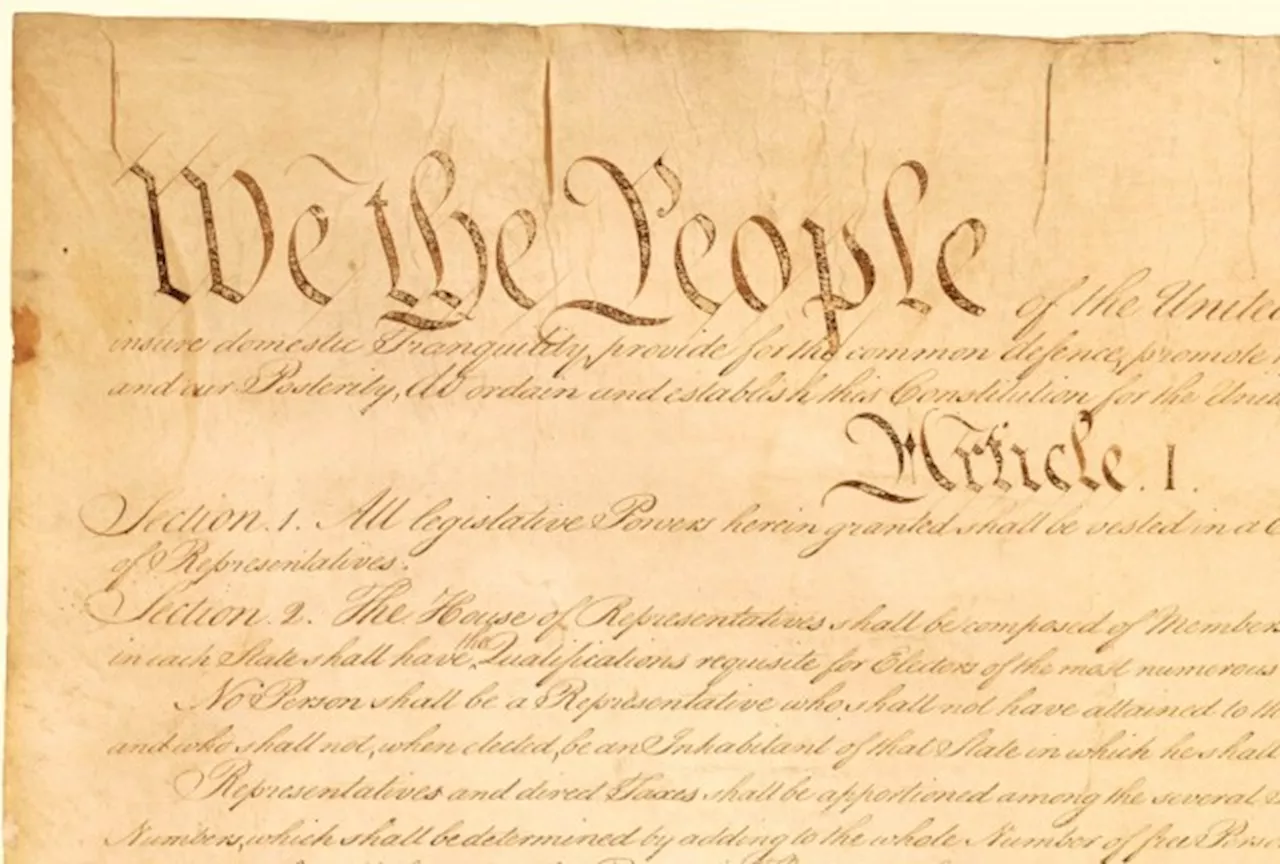 We the People of the Unite
insure domestic Tranquility, provide for the common defence, promote
and our Posterity, do ordain and establish this Constitution for the Unit
Article. I.
Section. 1. All legislative Powers herein granted shall be vested in a C
of Representatives.
Section. 2. The House of Representatives shall be composed of Members
in each State shall have the Qualifications requisite for Electors of the most numerous
No Person shall be a Representative who shall not have attained to th
and who shall not, when elected, be an Inhabitant of that State in which he shall
Representatives and direct Taxes shall be apportioned among the several
Numbers, which shall be determined by adding to the whole Number of free Perso